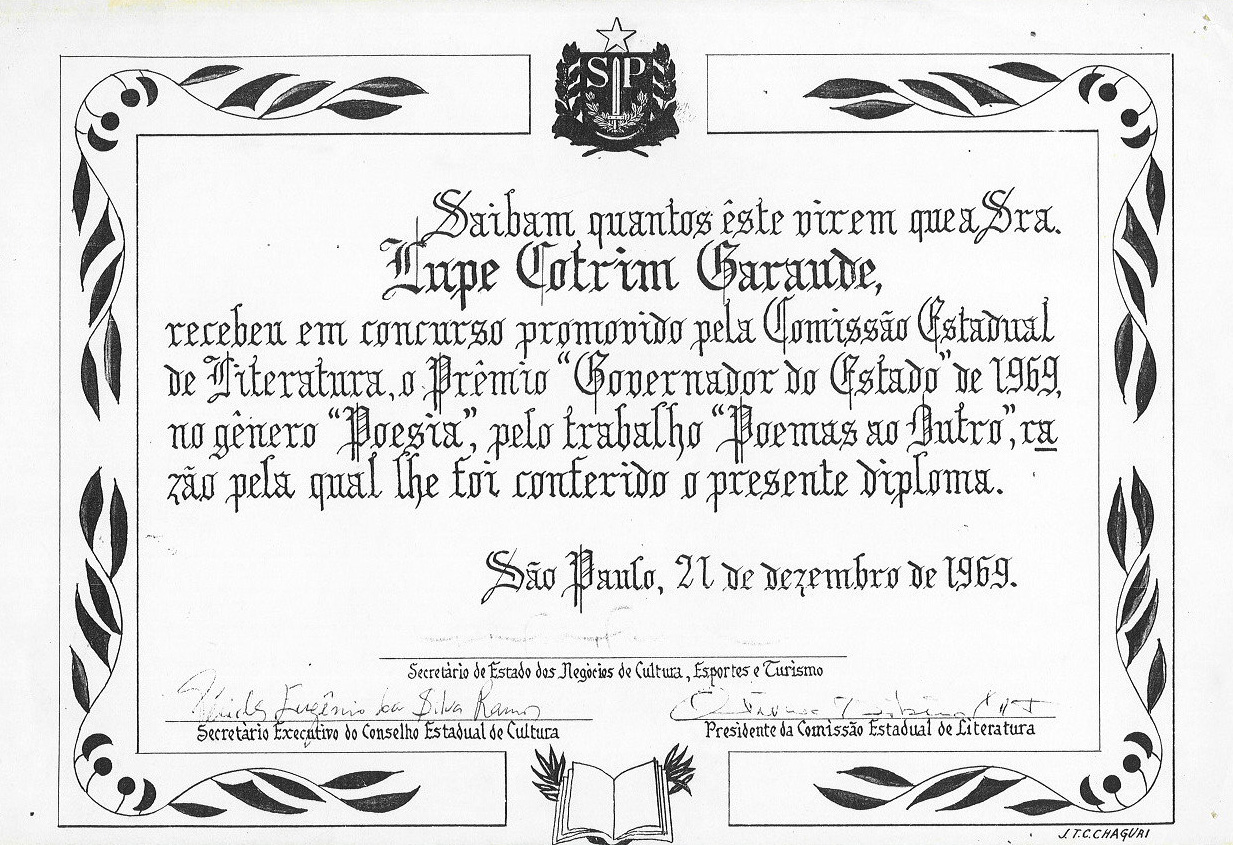 SP
Saibam quantos êste virem que a Sra.
Lupe Cotrim Garaude,
recebeu em concurso promovido pela Comissão Estadual
de Literatura, o Prêmio "Governador do Estado" de 1969,
no gênero "Poesia", pelo trabalho "Poemas ao Outro", ra
zão pela qual lhe foi conferido o presente diploma.
São Paulo, 21 de dezembro de 1969.
Secretário de Estado dos Negócios de Cultura, Esportes e Turismo
Péricles Eugênio da Silva Ramos
Secretário Executivo do Conselho Estadual de Cultura
Presidente da Comissão Estadual de Literatura
J.T.C.CHAGURI